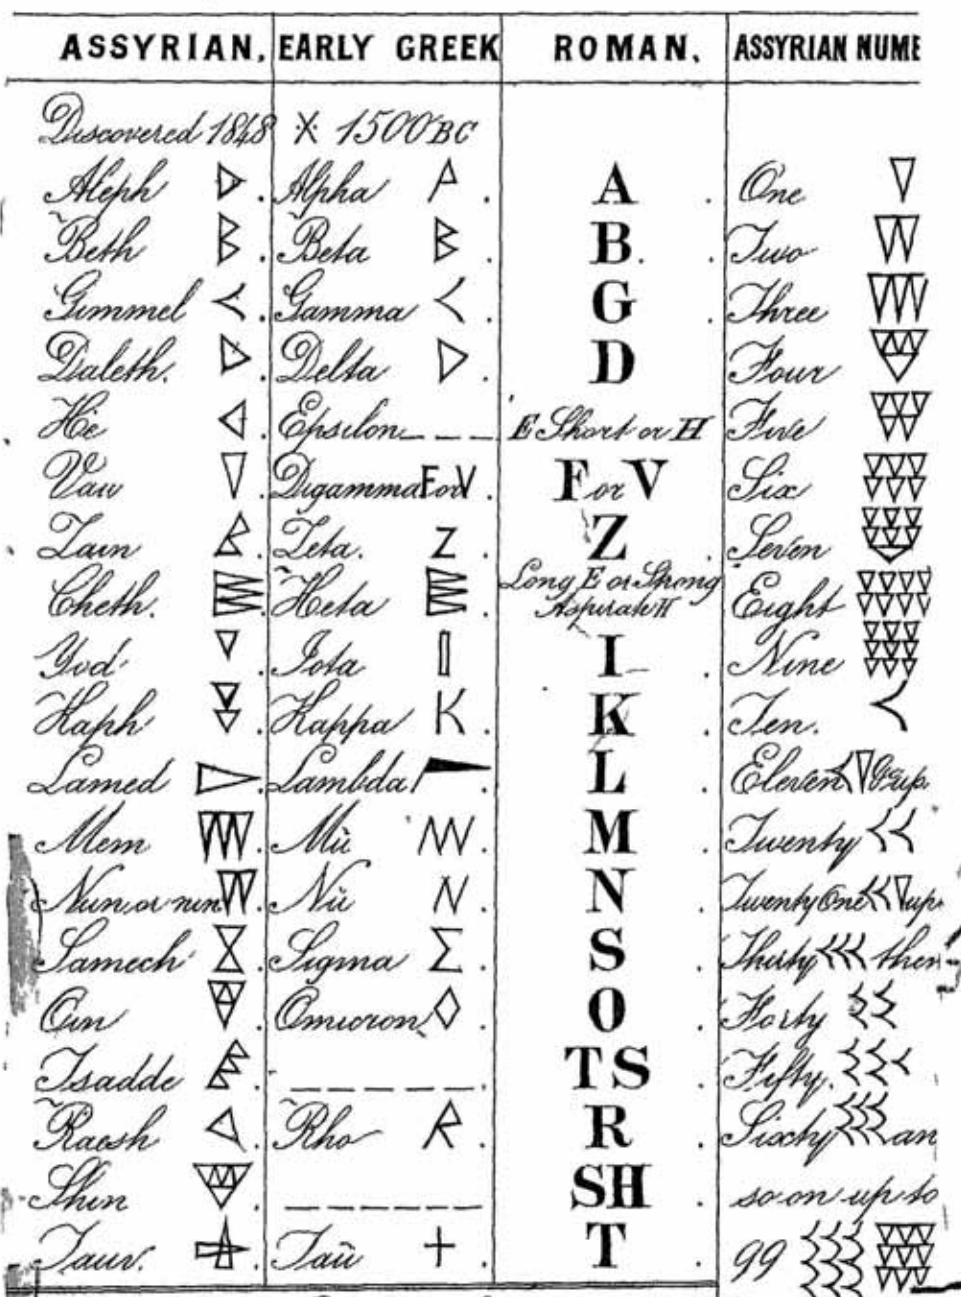 ASSYRIAN. EARLY GREEK ROMAN. ASSYRIAN NUME
Discovered 1848 X 1500 BC
Aleph Alpha A One
Beth Beta B. Two
Gimmel Gamma G Three
Daleth. Delta D Four
He Epsilon E Short or H Five
Vau Digamma F or V F or V Six
Zain Zeta. Z Z Seven
Cheth. Heta Long E or Strong Aspirate H Eight
Yod Iota I Nine
Kaph Kappa K K Ten.
Lamed Lambda L Eleven &c up
Mem Mù M Twenty
Nun or nun Nù N N Twenty One up
Samech Sigma Σ S Thirty then
Oin Omicron O Forty
Tsadde TS Fifty.
Raesh Rho R R Sixty an
Shin SH so on up to
Tauv. Taù T 99